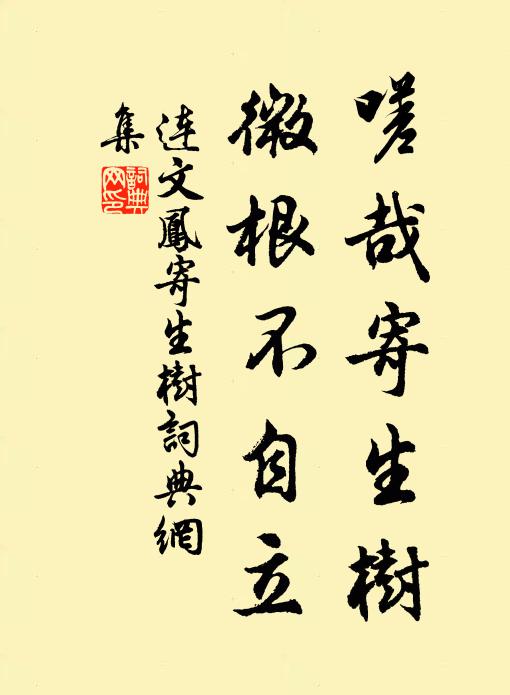 嗟哉寄生樹
微根不自立
連文鳳寄生樹詞典網
集
詞典網印